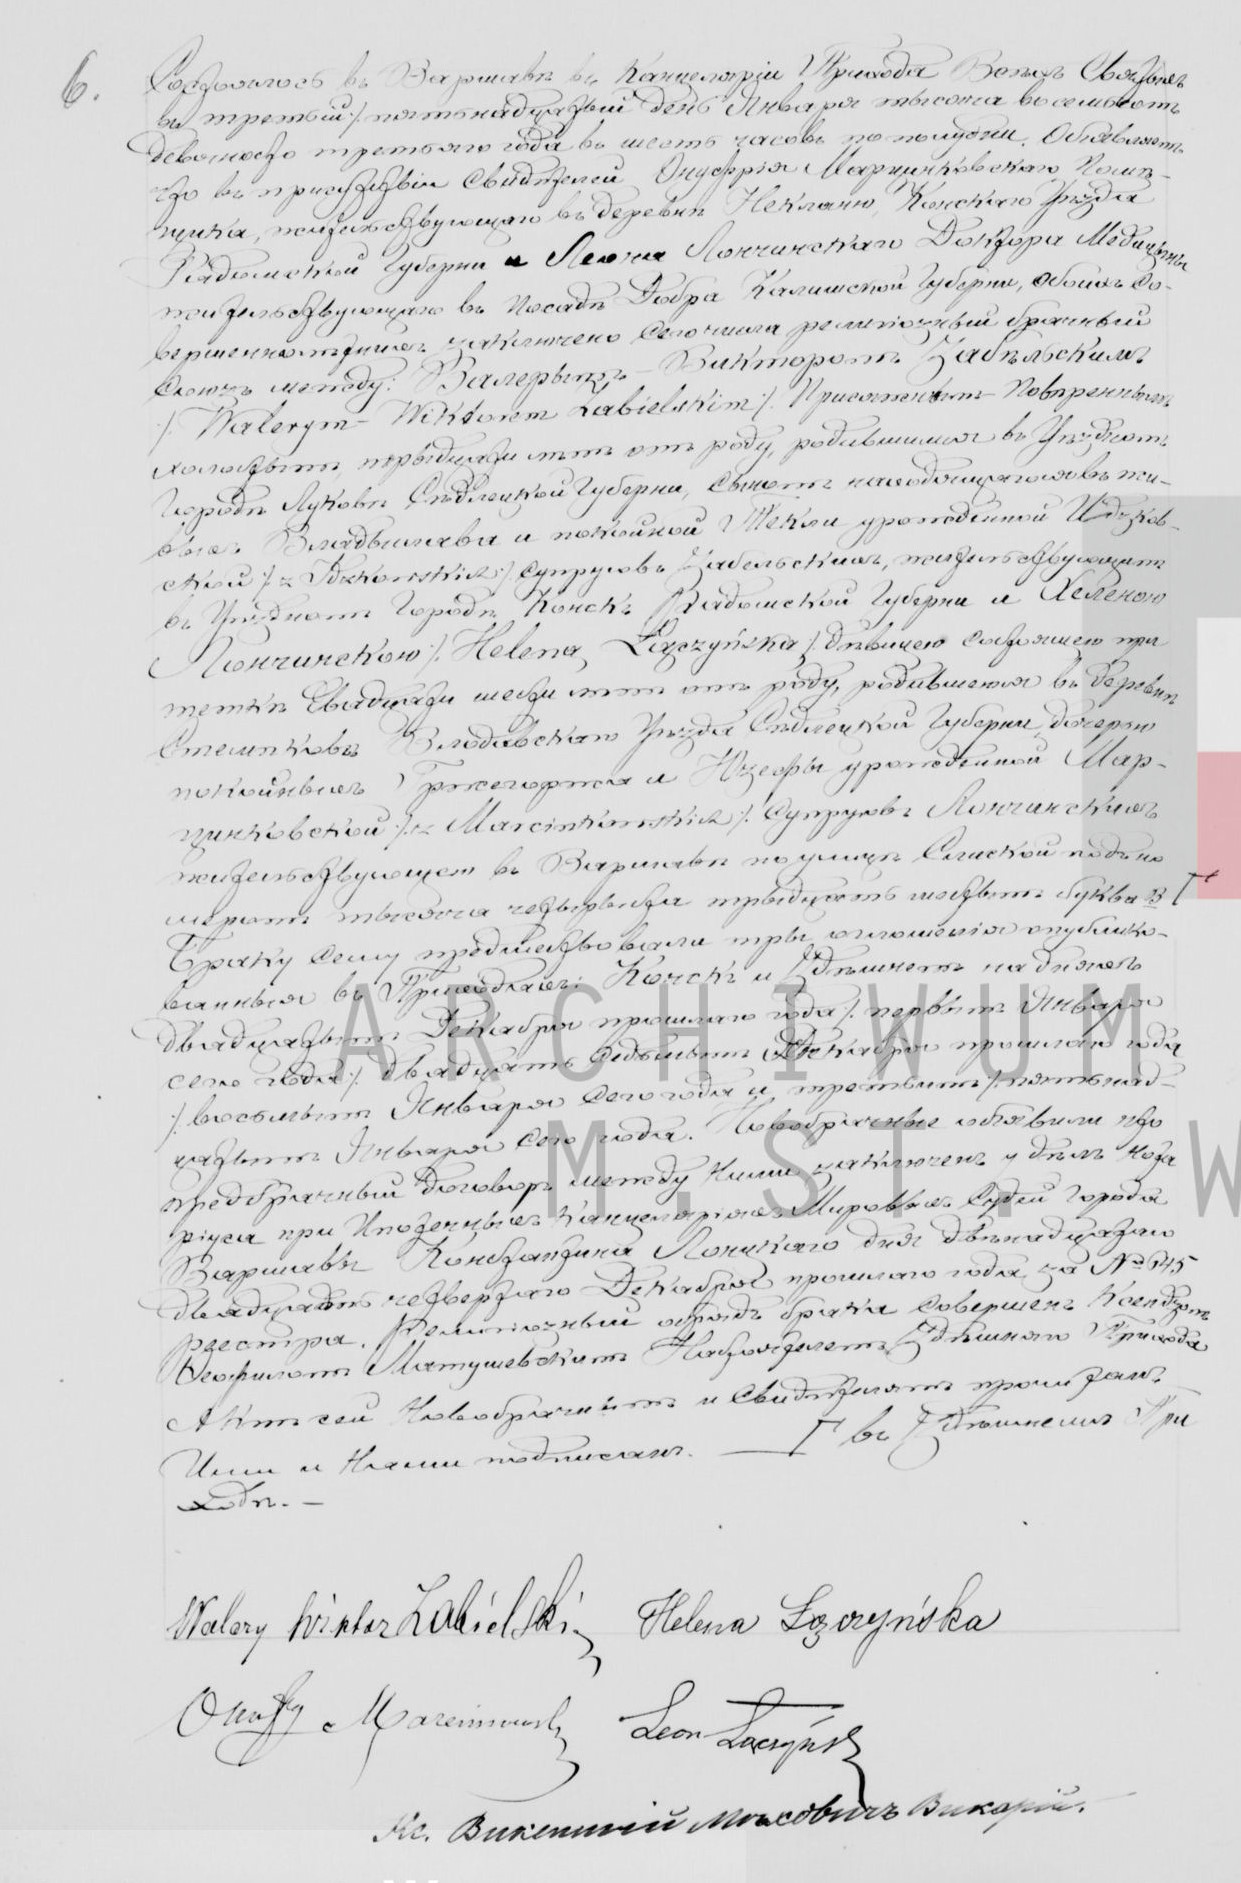 6.
Состоялось въ Варшавѣ въ Канцеляріи Прихода Всѣхъ Святыхъ
въ третій /:пятнадцатый день Января тысяча восемьсотъ
девяносто третьяго года въ шесть часовъ по полудни. Объявляемъ
что въ присутствіи Свидѣтелей Онуфрія Марцинковскаго Помѣ-
щика, жительствующаго въ деревнѣ Неклань, Конскаго Уѣзда
Радомской Губерніи и Леона Лончинскаго Доктора Медицины
жительствующаго въ посадѣ Добра Калишской Губерніи, обоихъ со-
вершеннолѣтнихъ заключено сего числа религіозный брачный
Союзъ между: Валерымъ-Викторомъ Забѣльскимъ
/: Walerym-Wiktorem Zabielskim:/ Присяжнымъ-Повѣреннымъ
холостымъ, тридцати лѣтъ отъ роду, родившимся въ Уѣздномъ
Городѣ Луковѣ Сѣдлецкой Губерніи, сыномъ находящагося въ жи-
выхъ Владыслава и покойной Текли урожденной
ской /:z :/ Супруговъ Забѣльскихъ, жительствующимъ
въ Уѣздномъ Городѣ Конскъ Радомской Губерніи и Хеленою
Лончинскою /: Helena Łączyńska:/ дѣвицею состоящею при
теткѣ двадцати шести лѣтъ отъ роду, родившеюся въ деревнѣ
Влодавскаго Уѣзда Сѣдлецкой Губерніи, дочерью
покойныхъ Гржегоржа и Юзефы урожденной Мар-
цинковской /:z Marcinkowskich:/ Супруговъ Лончинскихъ
жительствующею въ Варшавѣ по улицѣ Слиской подъ но
меромъ тысяча четыреста тридцать шестымъ буква В Г
Браку сему предшествовали три оглашенія опублико-
ванныя въ Приходахъ: Конскъ и Здѣшнемъ на дняхъ
двадцатымъ Декабря прошлаго года /: первымъ Января
сего года:/ двадцать седьмымъ Декабря прошлаго года
/:восьмымъ Января сего года и третьимъ /:пятнад-
цатымъ Января сего года. Новобрачные объявили что
предбрачный договоръ между ними заключенъ у дѣлъ Нота
ріуса при Ипотечныхъ Канцеляріяхъ Мировыхъ Судей Города
Варшавы Константина дня двѣнадцатаго
двадцать четвертаго Декабря прошлаго года за № 645
реестра. Религіозный обрядъ брака совершенъ Ксендзомъ
Теофиломъ Матушевскимъ Настоятелемъ Здѣшняго Прихода
Актъ сей Новобрачнымъ и свидѣтелямъ прочитанъ
Ими и Нами подписанъ. — Г въ Здѣшнемъ При
ходѣ. —
Walery Wiktor Zabielski Helena Łączyńska
Onufry Marcinkowski Leon Łączyński
Кс. Викентій Викарій.
ARCHIWUM
M.ST. W